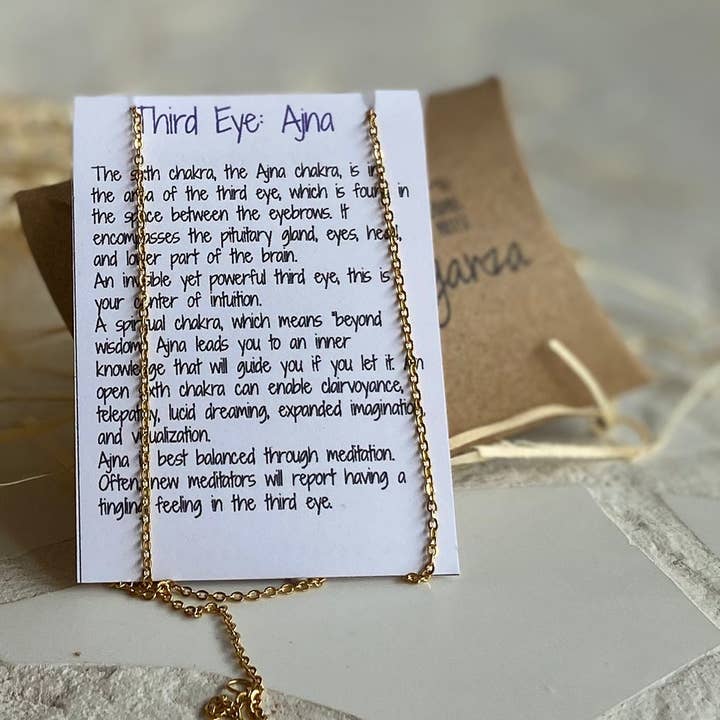 Third Eye: Ajna
The sixth chakra, the Ajna chakra, is in
the area of the third eye, which is found in
the space between the eyebrows. It
encompasses the pituitary gland, eyes, head,
and lower part of the brain.
An invisible yet powerful third eye, this is
your center of intuition.
A spiritual chakra, which means "beyond
wisdom" Ajna leads you to an inner
knowledge that will guide you if you let it. An
open sixth chakra can enable clairvoyance,
telepathy, lucid dreaming, expanded imagination,
and visualization.
Ajna is best balanced through meditation.
Often new meditators will report having a
tingling feeling in the third eye.